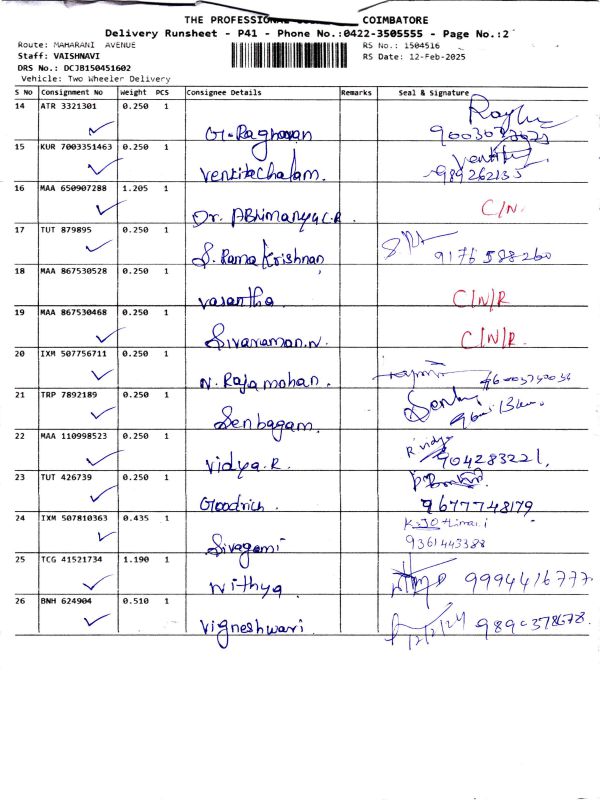 THE PROFESSIONAL COIMBATORE
Delivery Runsheet - P41 - Phone No.:0422-3505555 - Page No.:2
Route: MAHARANI AVENUE
RS No.: 1504516
Staff: VAISHNAVI
RS Date: 12-Feb-2025
DRS No.: DCJB150451602
Vehicle: Two Wheeler Delivery
S No Consignment No Weight PCS Consignee Details Remarks Seal & Signature
14 ATR 3321301 0.250 1 G.Raghavan
15 KUR 7003351463 0.250 1 Venkitachalam.
16 MAA 650907288 1.205 1 Dr. Abhimanyu C.R. C/N.
17 TUT 879895 0.250 1 S. Rama Krishnan 9176588260
18 MAA 867530528 0.250 1 Vasantha C/N/R
19 MAA 867530468 0.250 1 Sivaraman.N. C/N/R.
20 IXM 507756711 0.250 1 N. Rajamohan.
21 TRP 7892189 0.250 1 Senbagam.
22 MAA 110998523 0.250 1 Vidya.R. R Vidya 904283221,
23 TUT 426739 0.250 1 Goodrich. 9677748179
24 IXM 507810363 0.435 1 Sivagami 9361443388
25 TCG 41521734 1.190 1 Nithya 9994416777
26 BNH 624904 0.510 1 Vigneshwari. 12/2/24